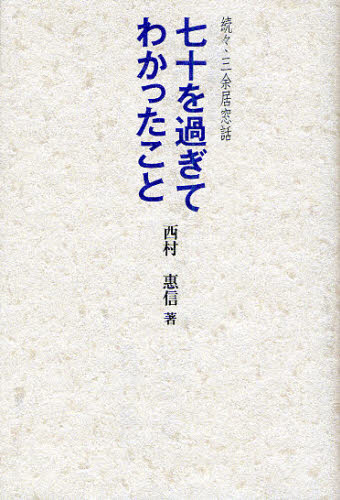 続々、三余居窓話
七十を過ぎて
わかったこと
西村 惠信 著